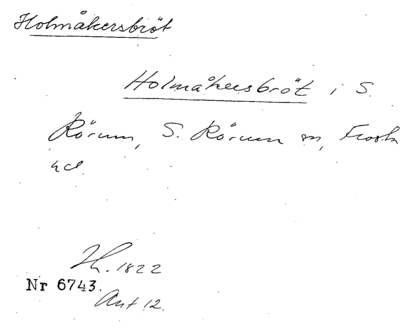 Holmåkersbröt
Holmåkersbröt i S.
Rörum, S. Rörum sn, Frosta
hd
Lh. 1822
Nr 6743.
Ant 12.